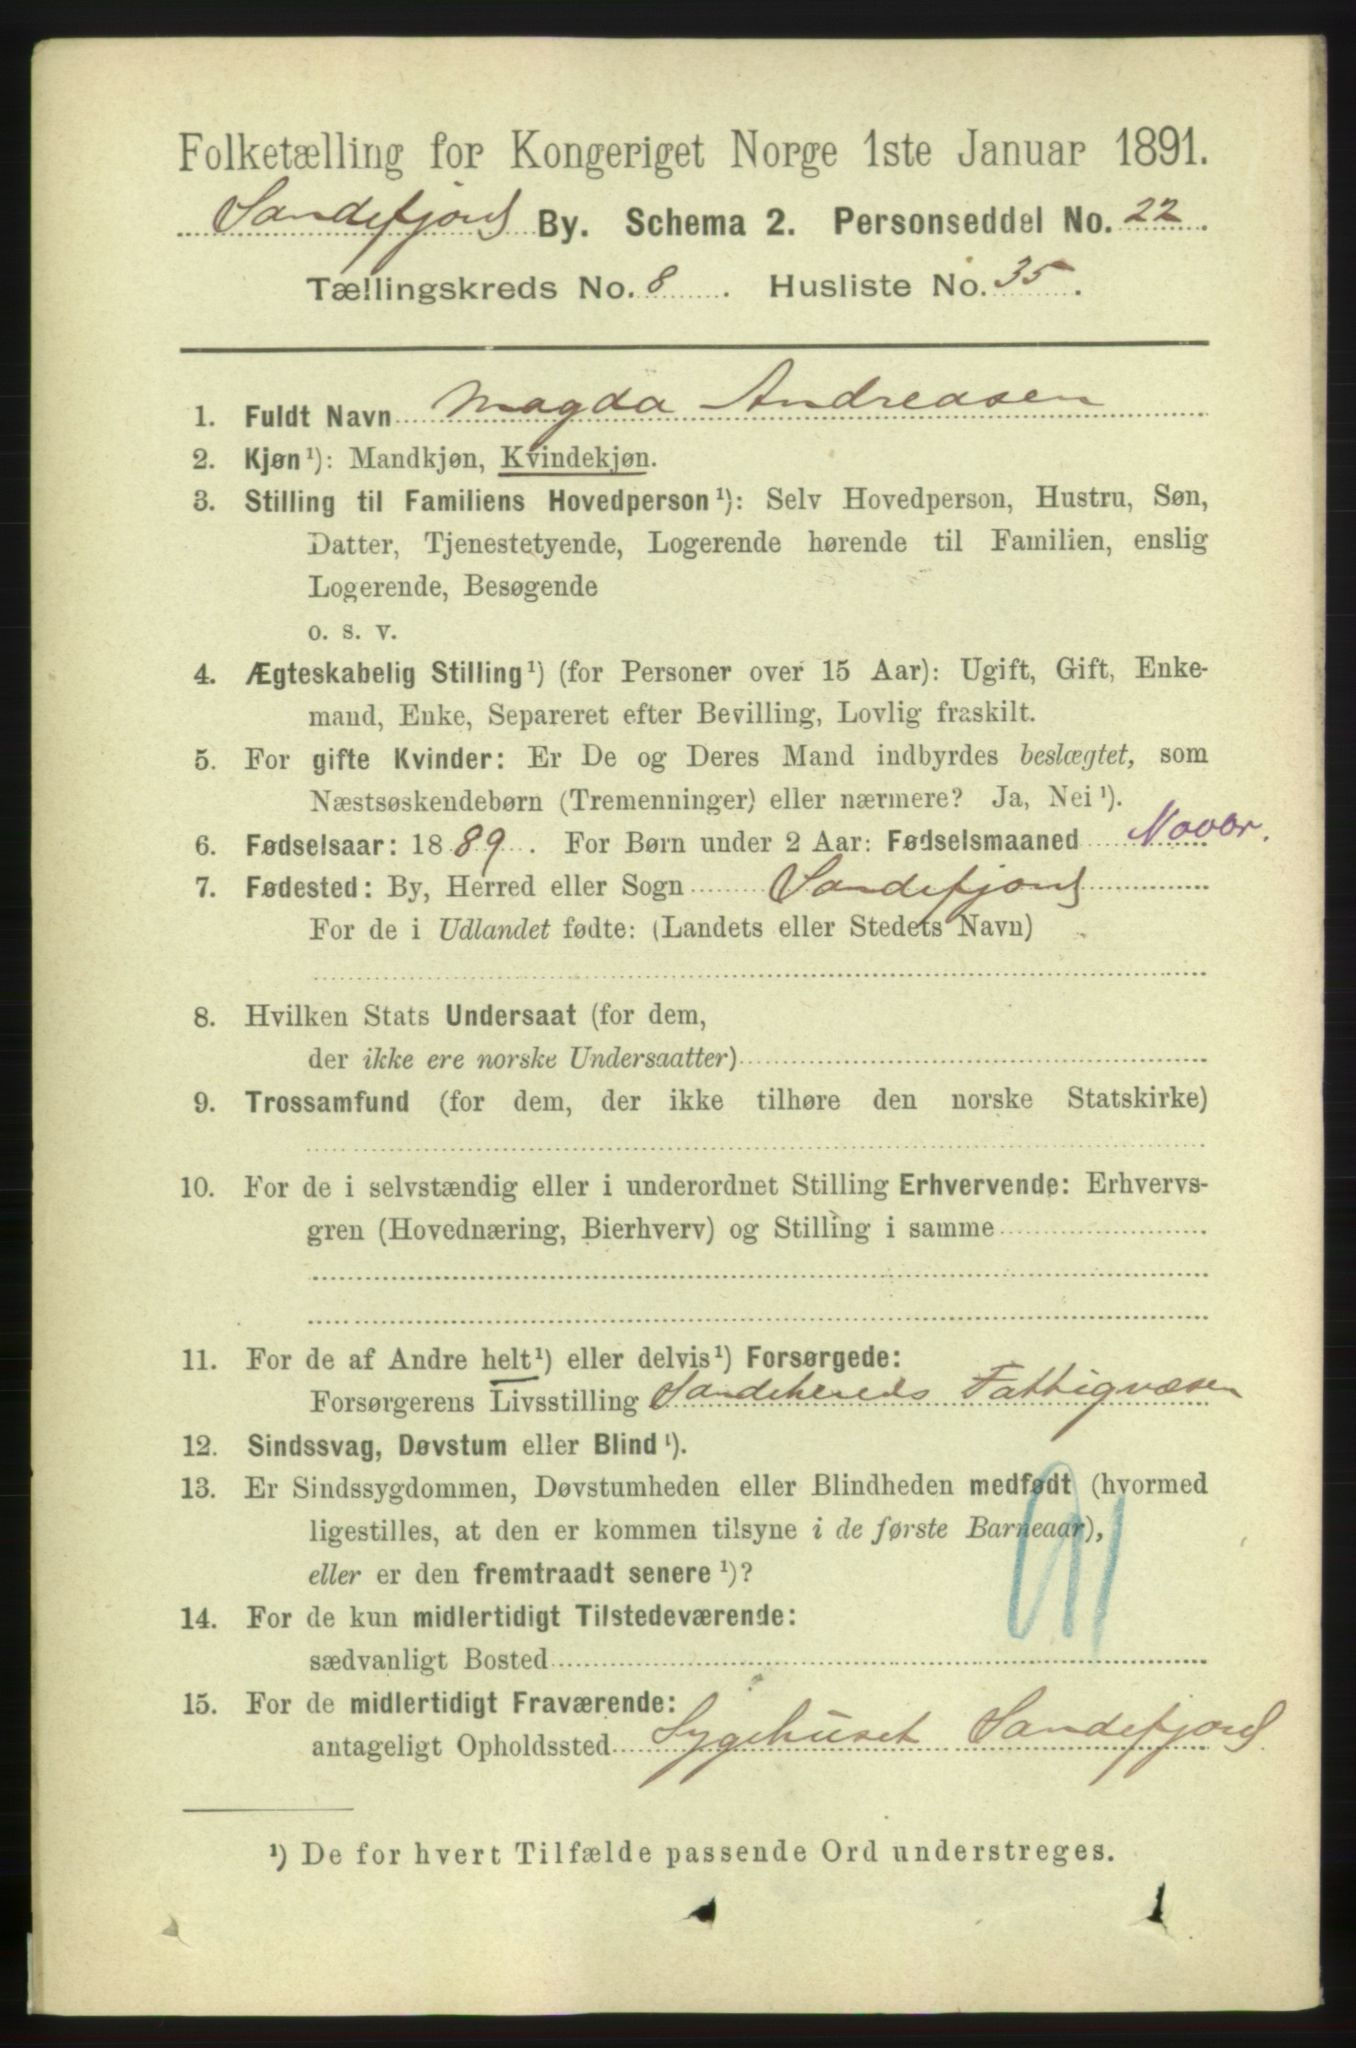 Folketælling for Kongeriget Norge 1ste Januar 1891.
Sandefjord By. Schema 2. Personseddel No. 22.
Tællingskreds No. 8. Husliste No. 35.
1. Fuldt Navn Magda Andreasen
2. Kjøn¹): Mandkjøn, Kvindekjøn.
3. Stilling til Familiens Hovedperson¹): Selv Hovedperson, Hustru, Søn,
Datter, Tjenestetyende, Logerende hørende til Familien, enslig
Logerende, Besøgende
o. s. v.
4. Ægteskabelig Stilling¹) (for Personer over 15 Aar): Ugift, Gift, Enke-
mand, Enke, Separeret efter Bevilling, Lovlig fraskilt.
5. For gifte Kvinder: Er De og Deres Mand indbyrdes beslægtet, som
Næstsøskendebørn (Tremenninger) eller nærmere? Ja, Nei¹).
6. Fødselsaar: 1889. For Børn under 2 Aar: Fødselsmaaned Novbr.
7. Fødested: By, Herred eller Sogn Sandefjord
For de i Udlandet fødte: (Landets eller Stedets Navn)
8. Hvilken Stats Undersaat (for dem,
der ikke ere norske Undersaatter)
9. Trossamfund (for dem, der ikke tilhøre den norske Statskirke)
10. For de i selvstændig eller i underordnet Stilling Erhvervende: Erhvervs-
gren (Hovednæring, Bierhverv) og Stilling i samme
11. For de af Andre helt¹) eller delvis¹) Forsørgede:
Forsørgerens Livsstilling Sandehereds Fattigvæsen
12. Sindssvag, Døvstum eller Blind¹).
13. Er Sindssygdommen, Døvstumheden eller Blindheden medfødt (hvormed
ligestilles, at den er kommen tilsyne i de første Barneaar),
eller er den fremtraadt senere¹)?
14. For de kun midlertidigt Tilstedeværende:
sædvanligt Bosted
15. For de midlertidigt Fraværende:
antageligt Opholdssted Sygehuset Sandefjord
¹) De for hvert Tilfælde passende Ord understreges.